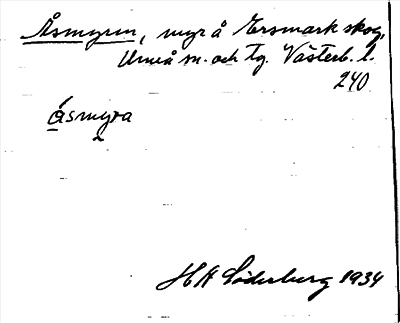 Åsmyran, myr å Ersmark skog,
Umeå sn. och tg. Västerb. l.
240
åsmyra
H A Söderberg 1934